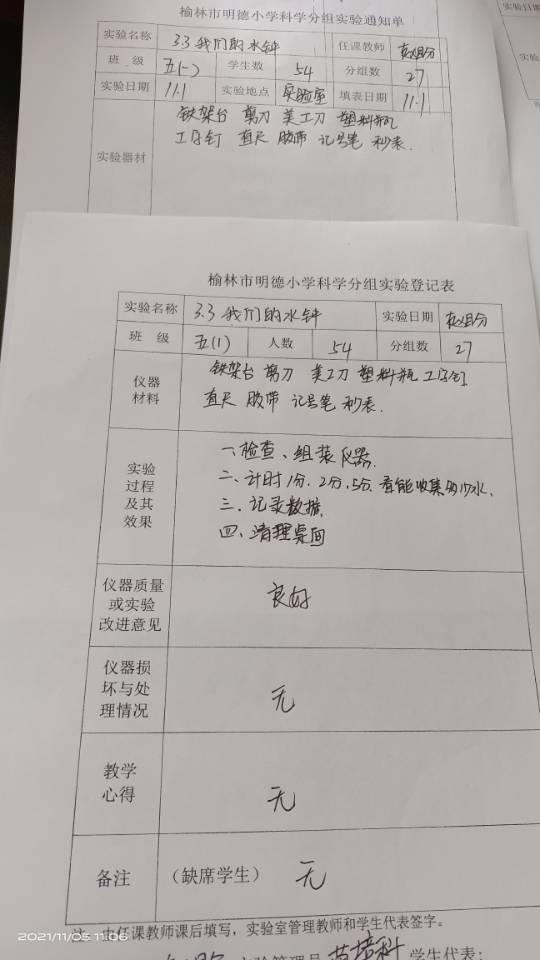 榆林市明德小学科学分组实验通知单
实验名称 3.3 我们的水钟 任课教师
班 级 五(一) 学生数 54 分组数 27
实验日期 11.1 实验地点 实验室 填表日期 11.1
实验器材 铁架台 剪刀 美工刀 塑料瓶
工字钉 直尺 胶带 记号笔 秒表.
实验日期
榆林市明德小学科学分组实验登记表
实验名称 3.3 我们的水钟 实验日期
班 级 五(1) 人数 54 分组数 27
仪器
材料
铁架台 剪刀 美工刀 塑料瓶 工字钉
直尺 胶带 记号笔 秒表.
实验
过程
及其
效果
一、检查、组装仪器.
二、计时1分、2分、5分.看能收集多少水.
三、记录数据
四、清理桌面
仪器质量
或实验
改进意见
良好
仪器损
坏与处
理情况
无
教学
心得
无
备注 (缺席学生) 无
注:由任课教师课后填写,实验室管理教师和学生代表签字。
实验管理员 学生代表:
2021/11/05 11:06